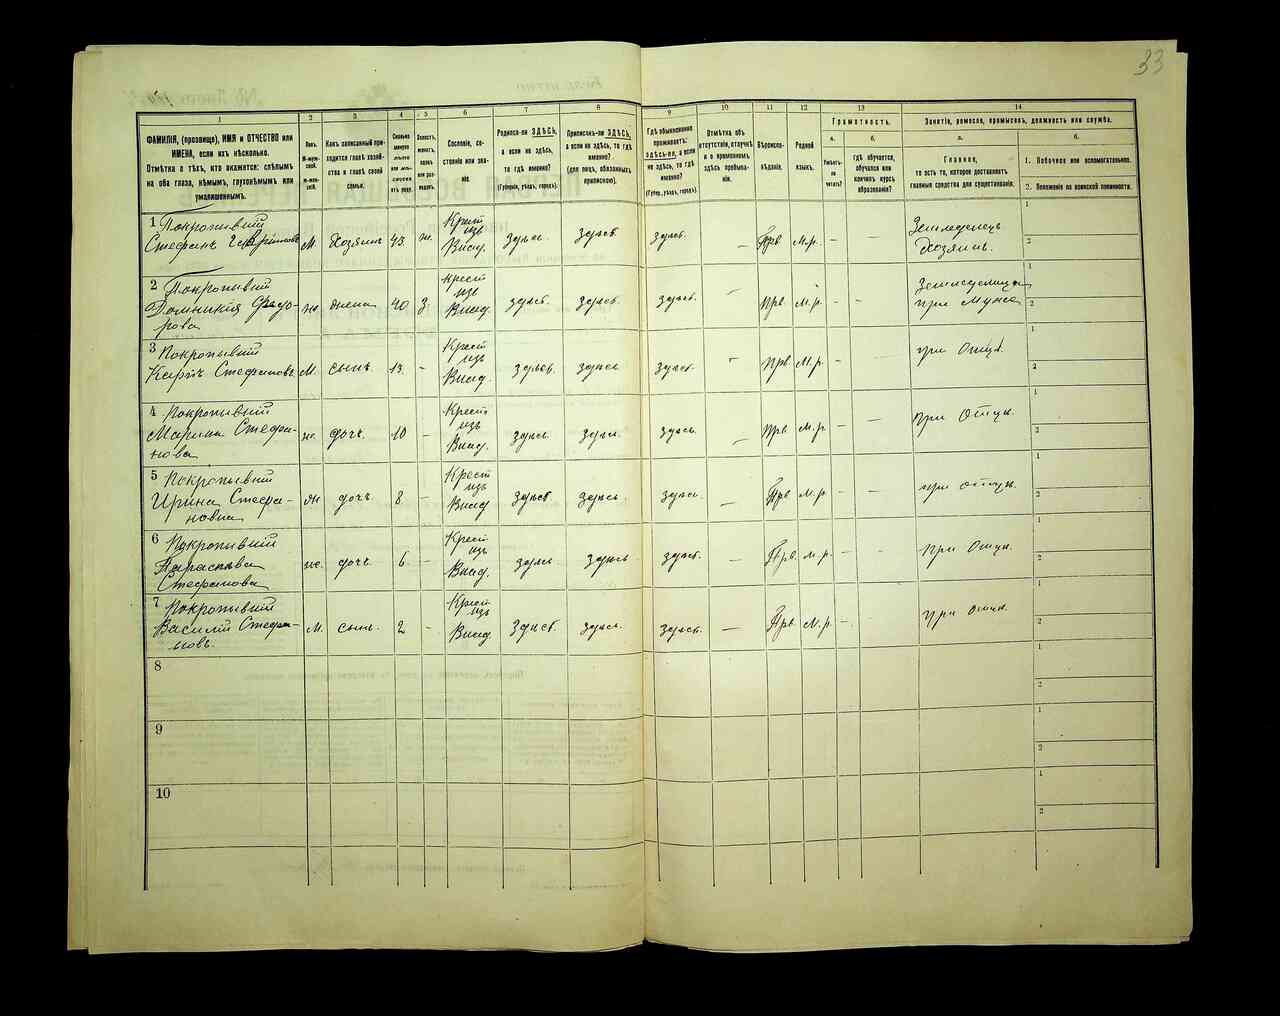 33
1 2 3 4 5 6 7 8 9 10 11 12 13 14
ФАМИЛІЯ, (прозвище), ИМЯ и ОТЧЕСТВО или
ИМЕНА, если ихъ нѣсколько.
Отмѣтка о тѣхъ, кто окажется: слѣпымъ
на оба глаза, нѣмымъ, глухонѣмымъ или
умалишеннымъ.
Полъ.
М-муж-
ской.
Ж-жен-
скій.
Какъ записанный при-
ходится главѣ хозяй-
ства и главѣ своей
семьи.
Сколько
минуло
лѣтъ
или мѣ-
сяцевъ
отъ роду.
Холостъ,
женатъ,
вдовъ
или раз-
веденъ.
Сословіе, со-
стояніе или зва-
ніе.
Родился-ли ЗДѢСЬ,
а если не здѣсь,
то гдѣ именно?
(Губернія, уѣздъ, городъ).
Приписанъ-ли ЗДѢСЬ,
а если не здѣсь, то гдѣ
именно?
(для лицъ, обязанныхъ
припискою).
Гдѣ обыкновенно
проживаетъ:
ЗДѢСЬ-ЛИ, а если
не здѣсь, то гдѣ
именно?
(Губер., уѣздъ, городъ).
Отмѣтка объ
отсутствіи, отлучкѣ
и о временномъ
здѣсь пребыва-
ніи.
Вѣроиспо-
вѣданіе.
Родной
языкъ.
Грамотность.
а.
Умѣетъ-
ли
читать?
б.
Гдѣ обучается,
обучался или
кончилъ курсъ
образованія?
Занятіе, ремесло, промыселъ, должность или служба.
а.
Главное,
то есть то, которое доставляетъ
главныя средства для существованія.
б.
1. Побочное или вспомогательное.
2. Положеніе по воинской повинности.
1 Покропывный
Стефанъ М. Хозяинъ 43 ж. Крест изъ Влад. здѣсь здѣсь здѣсь — Прв М.р. — Земледѣлецъ Хозяинъ. 1 2
2 Покропывный
Домникія Федо-
рова ж. жена 40 З. Крест изъ Влад. здѣсь здѣсь здѣсь - Прв М.р. - - при Мужѣ 1 2
3 Покропывный
Карпъ Стефановъ М. сынъ 13. - Крест изъ Влад. здѣсь здѣсь здѣсь - Прв М.р. - при Отцѣ. 1 2
4 Покропывный
Марина Стефа-
нова ж. дочь. 10 - Крест изъ Влад. здѣсь. здѣсь. здѣсь — Прв М.р. - - при Отцѣ. 1 2
5 Покропывный
Ирина Стефа-
новна ж дочь 8. - Крест изъ Влад здѣсь здѣсь здѣсь. — Прв М.р. - - при отцѣ. 1 2
6 Покропывный
Параскева
Стефанова ж. дочь 6. - Крест изъ Влад. здѣсь здѣсь здѣсь. — Прв. М.р. - - при Отцѣ. 1 2
7 Покропывный
Василій Стефа-
новъ. М. сынъ. 2 - Крест изъ Влад здѣсь здѣсь здѣсь. — Прв М.р. - при отцѣ 1 2
8 1 2
9 1 2
10 1 2